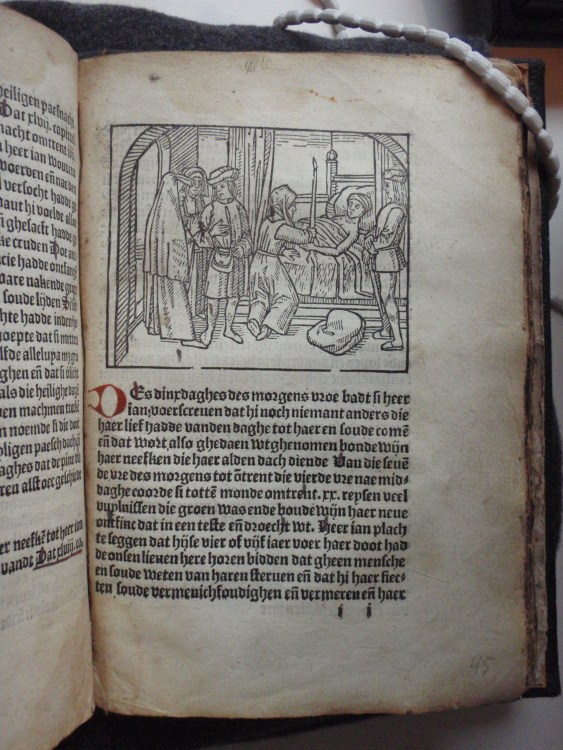 heiligen paesnacht
Dat xlvij. capittel
nacht omtrent
heer ian wouters
woerden eñ nae
versocht hadde
naut hi voelde also
eñ ghesacft hadde
cruden Doe
hadde ontfang
nare nakende
soude lijden
chte hadde
noepte dat si
alleluya
ghen eñ dat si
als die heilighe
men machmen
noemde si die
heilighen paesch dach
daghes dat
ren alst oec geschiede
er neefkẽ tot heer ian
vandt Dat xlviij. ca.
DEs dinxdaghes des morgens vroe badt si heer
ian voerscreuen dat hi noch niemant anders die
haer lief hadde vanden daghe tot haer en soude comẽ
eñ dat wort also ghedaen wtghenomen boude wijn
haer neefken die haer alden dach diende Van die seuẽ
de vre des morgens tot õtrent die vierde vre nae mid-
daghe coorde si tottẽ monde omtrent .xx. reysen veel
vuylnissen die groen was ende boude wijn haer neue
ontfinc dat in een teste eñ droecht wt. Heer ian plach
te seggen dat hijse vier of vijf iaer voer haer doot had-
de onsen lieuen here horen bidden dat gheen mensche
en soude weten van haren steruen eñ dat hi haer siec-
ten soude vermenichfoudighen eñ vermeren eñ haer
i i
45